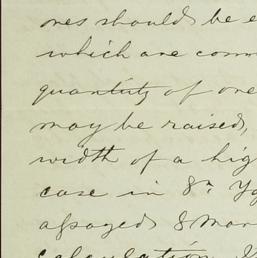 ones should be e
which are com
quantity of one
may be raised,
width of a hig
case in 8
8 Mar
calculation.